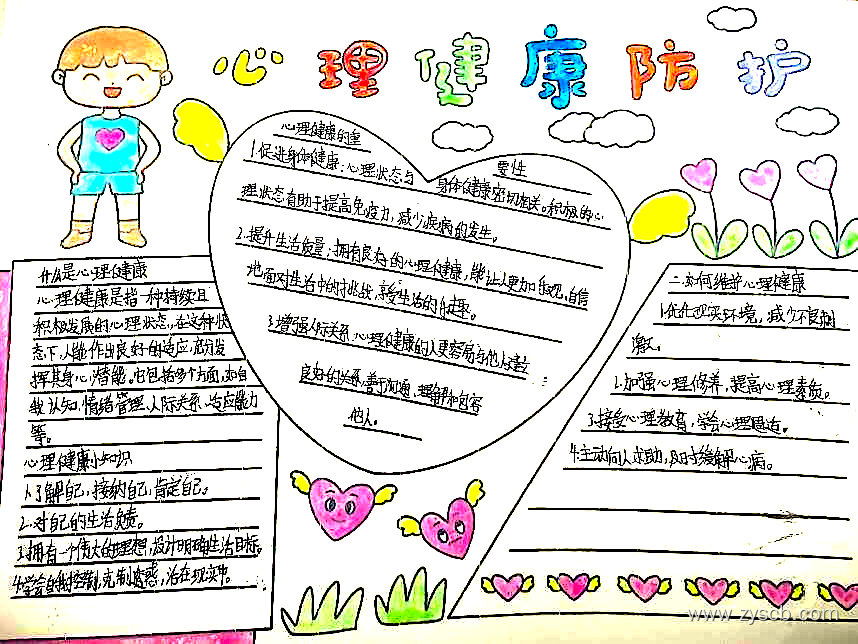 心理健康防护
什么是心理健康
心理健康是指一种持续且
积极发展的心理状态,在这种状
态下,人能作出良好的适应,
挥其身心潜能。它包括多个方面,如自
我认知,情绪管理,人际关系、适应能力
等。
心理健康小知识
1.了解自己,接纳自己,肯定自己。
2.对自己的生活负责。
3.拥有一个伟大的理想,设计明确生活目标。
4.学会自我控制,克制,活在现实中。
心理健康的重要性
1.促进身体健康:心理状态与身体健康密切相关。积极的心
理状态有助于提高免疫力,减少疾病的发生。
2.提升生活质量:拥有良好的心理健康,能让人更加乐观、自信
地面对生活中的挑战,享受生活的乐趣。
3.增强人际关系:心理健康的人更容易与他人建立
良好的关系,善于沟通、理解和包容
他人。
二.如何维护心理健康
1.优化现实环境,减少不良刺
激。
2.加强心理修养,提高心理素质。
3.接受心理教育,学会心理调适。
4.主动向人求助,及时缓解心病。
www.zyscb.com